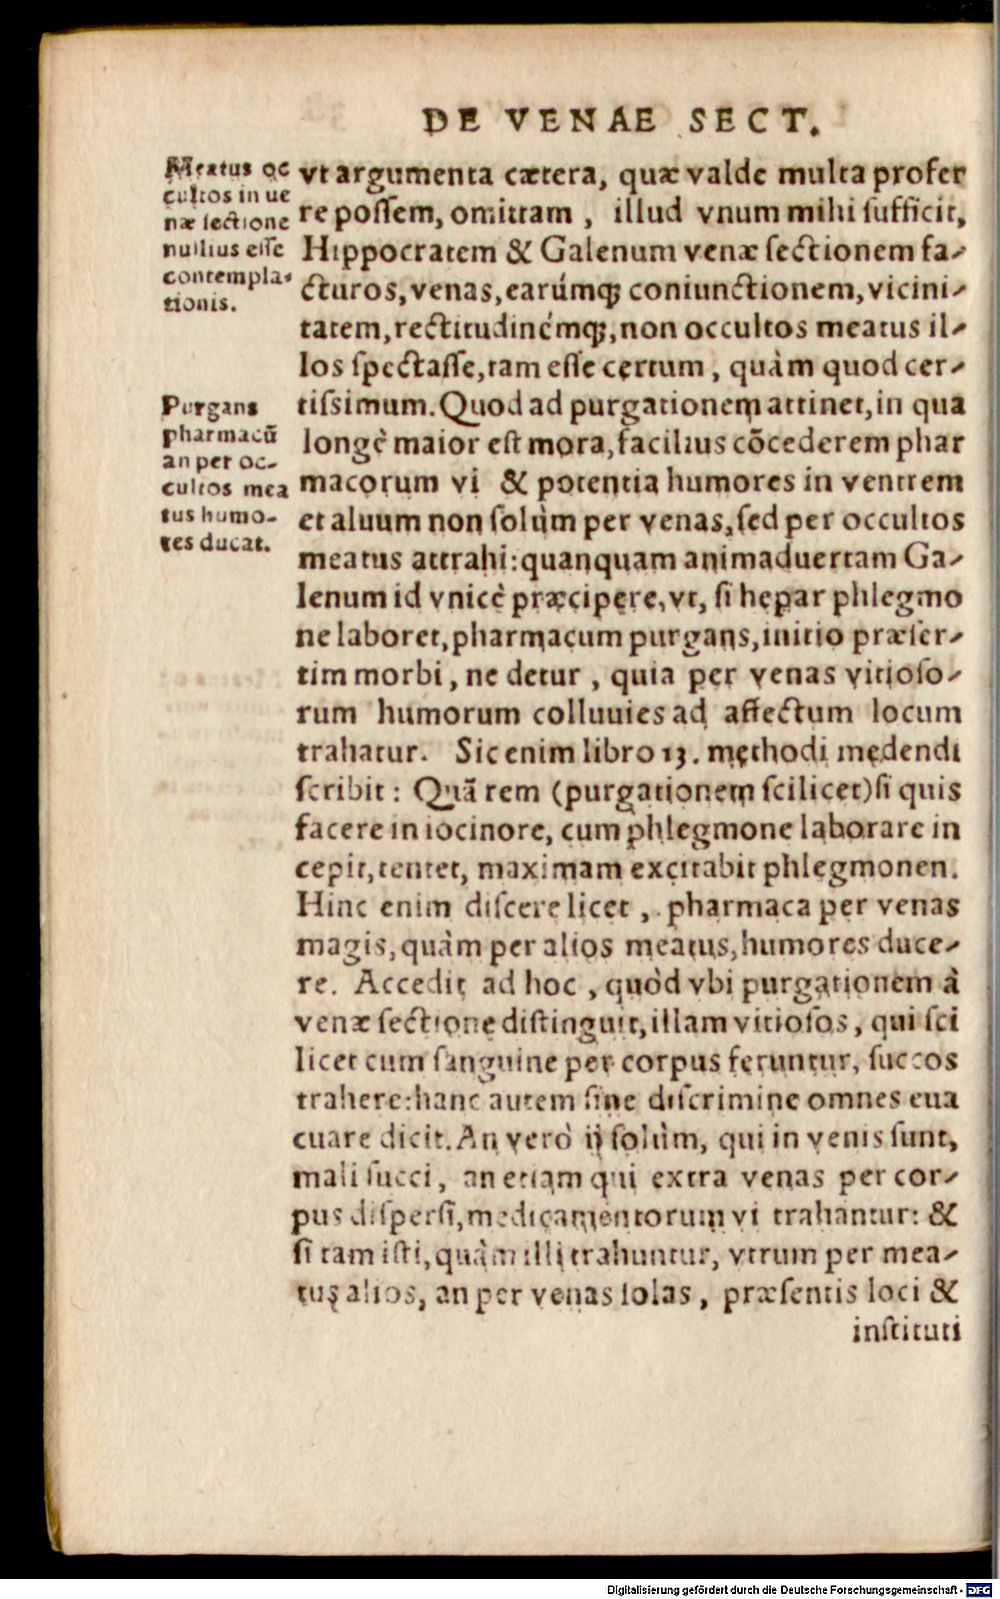 DE VENAE SECT.
Meatus oc
cultos in ue
næ sectione
nullius esse
contempla-
tionis.
vt argumenta cætera, quæ valde multa profer
re possem, omittam , illud vnum mihi sufficit,
Hippocratem & Galenum venæ sectionem fa-
cturos, venas, earúmq; coniunctionem, vicini-
tatem, rectitudinémq;, non occultos meatus il-
los spectasse, tam esse certum , quàm quod cer-
tissimum. Quod ad purgationem attinet, in qua
Purgans
pharmacū
an per oc-
cultos mea
tus humo-
res ducat.
longè maior est mora, facilius cōcederem phar
macorum vi & potentia humores in ventrem
et aluum non solùm per venas, sed per occultos
meatus attrahi: quanquam animaduertam Ga-
lenum id vnicè præcipere, vt, si hepar phlegmo
ne laboret, pharmacum purgans, initio præser-
tim morbi , ne detur , quia per venas vitioso-
rum humorum colluuies ad affectum locum
trahatur. Sic enim libro 13. methodi medendi
scribit : Quā rem (purgationem scilicet) si quis
facere in iocinore, cum phlegmone laborare in
cepit, tentet, maximam excitabit phlegmonen.
Hinc enim discere licet , pharmaca per venas
magis, quàm per alios meatus, humores duce-
re. Accedit ad hoc , quòd vbi purgationem à
venæ sectione distinguit, illam vitiosos , qui sci
licet cum sanguine per corpus feruntur, succos
trahere: hanc autem sine discrimine omnes eua
cuare dicit. An verò ij solùm, qui in venis sunt,
mali succi , an etiam qui extra venas per cor-
pus dispersi, medicamentorum vi trahantur: &
si tam isti, quàm illi trahuntur, vtrum per mea-
tus alios, an per venas solas , præsentis loci &
instituti
Digitalisierung gefördert durch die Deutsche Forschungsgemeinschaft - DFG